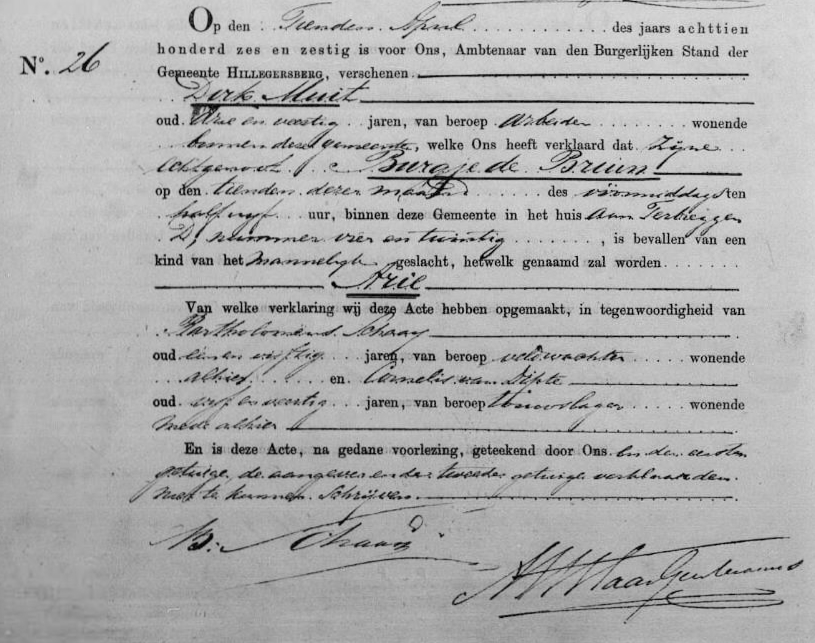 Op den Tienden April des jaars achttien
honderd zes en zestig is voor Ons, Ambtenaar van den Burgerlijken Stand der
N°. 26
Gemeente HILLEGERSBERG, verschenen
Dirk Muit
oud drie en veertig jaren, van beroep arbeider wonende
binnen deze gemeente, welke Ons heeft verklaard dat zijne
echtgenoot Burgje de Bruin
op den tienden dezer maand des voormiddags ten
half vijf uur, binnen deze Gemeente in het huis aan Terbregge
D, nummer vier en twintig, is bevallen van een
kind van het mannelijk geslacht, hetwelk genaamd zal worden
Arie
Van welke verklaring wij deze Acte hebben opgemaakt, in tegenwoordigheid van
Bartholomeus Schaay
oud een en vijftig jaren, van beroep veldwachter wonende
alhier en Cornelis van
oud vijf en veertig jaren, van beroep wonende
mede alhier
En is deze Acte, na gedane voorlezing, geteekend door Ons en den eersten
getuige, de aangever en de tweede getuige verklaarden
niet te kunnen schrijven.
B. Schaay